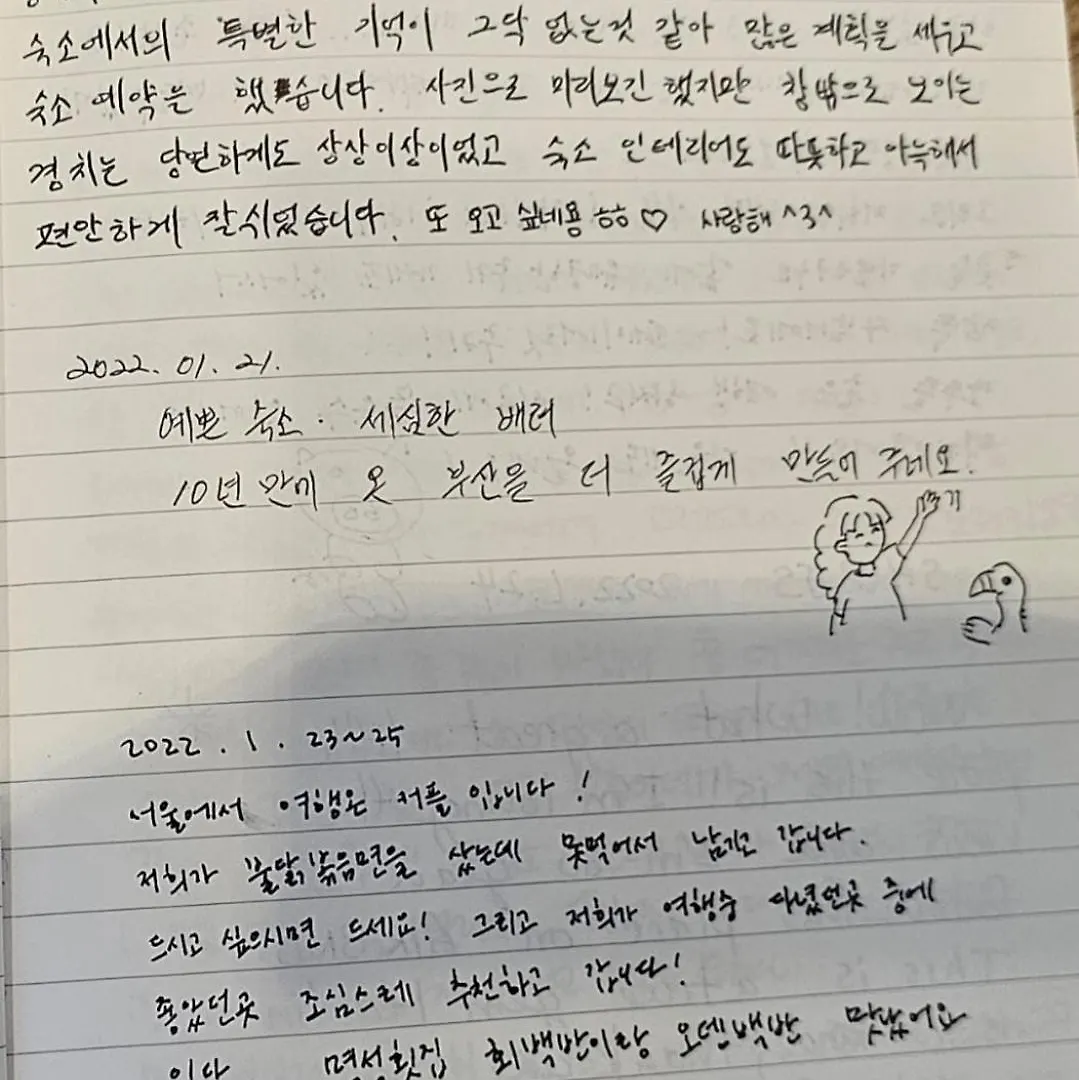 숙소에서의 특별한 기억이 그닥 없는것 같아 많은 계획을 세우고
숙소 예약을 했습니다. 사진으로 미리보긴 했지만 창밖으로 보이는
경치는 당연하게도 상상이상이었고 숙소 인테리어도 따뜻하고 아늑해서
편안하게 잘쉬었습니다. 또 오고 싶네용 ㅎㅎ ♡ 사랑해 ^3^
2022. 01. 21.
예쁜 숙소. 세심한 배려
10년 만에 온 부산을 더 즐겁게 만들어 주네요.
2022. 1. 23~25
서울에서 여행온 커플 입니다!
저희가 불닭볶음면을 샀는데 못먹어서 남기고 갑니다.
드시고 싶으시면 드세요! 그리고 저희가 여행중 다녔던곳 중에
좋았던곳 조심스레 추천하고 갑니다!
명성횟집 회백반이랑 오뎅백반 맛났어요